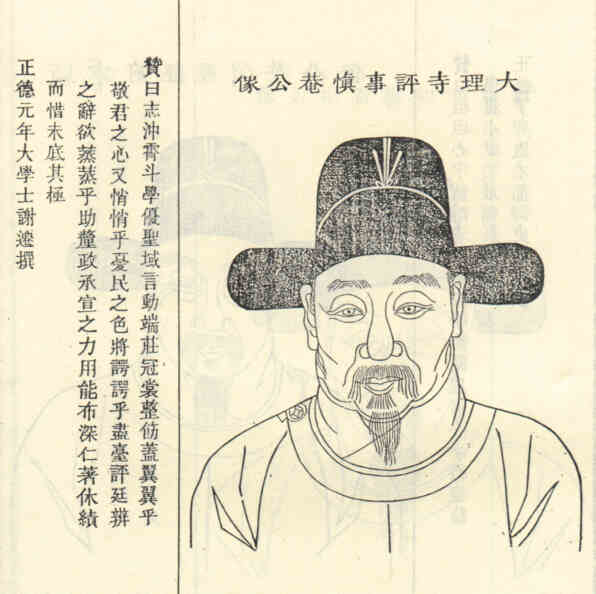 大理寺評事慎菴公像
贊曰志沖霄斗學優聖域言動端莊冠裳整飭蓋翼翼乎
敬君之心又悄悄乎憂民之色將諤諤乎盡臺評廷辨
之辭欲蒸蒸乎助釐政承宣之力用能布深仁著休績
而惜未底其極
正德元年大學士謝遷撰